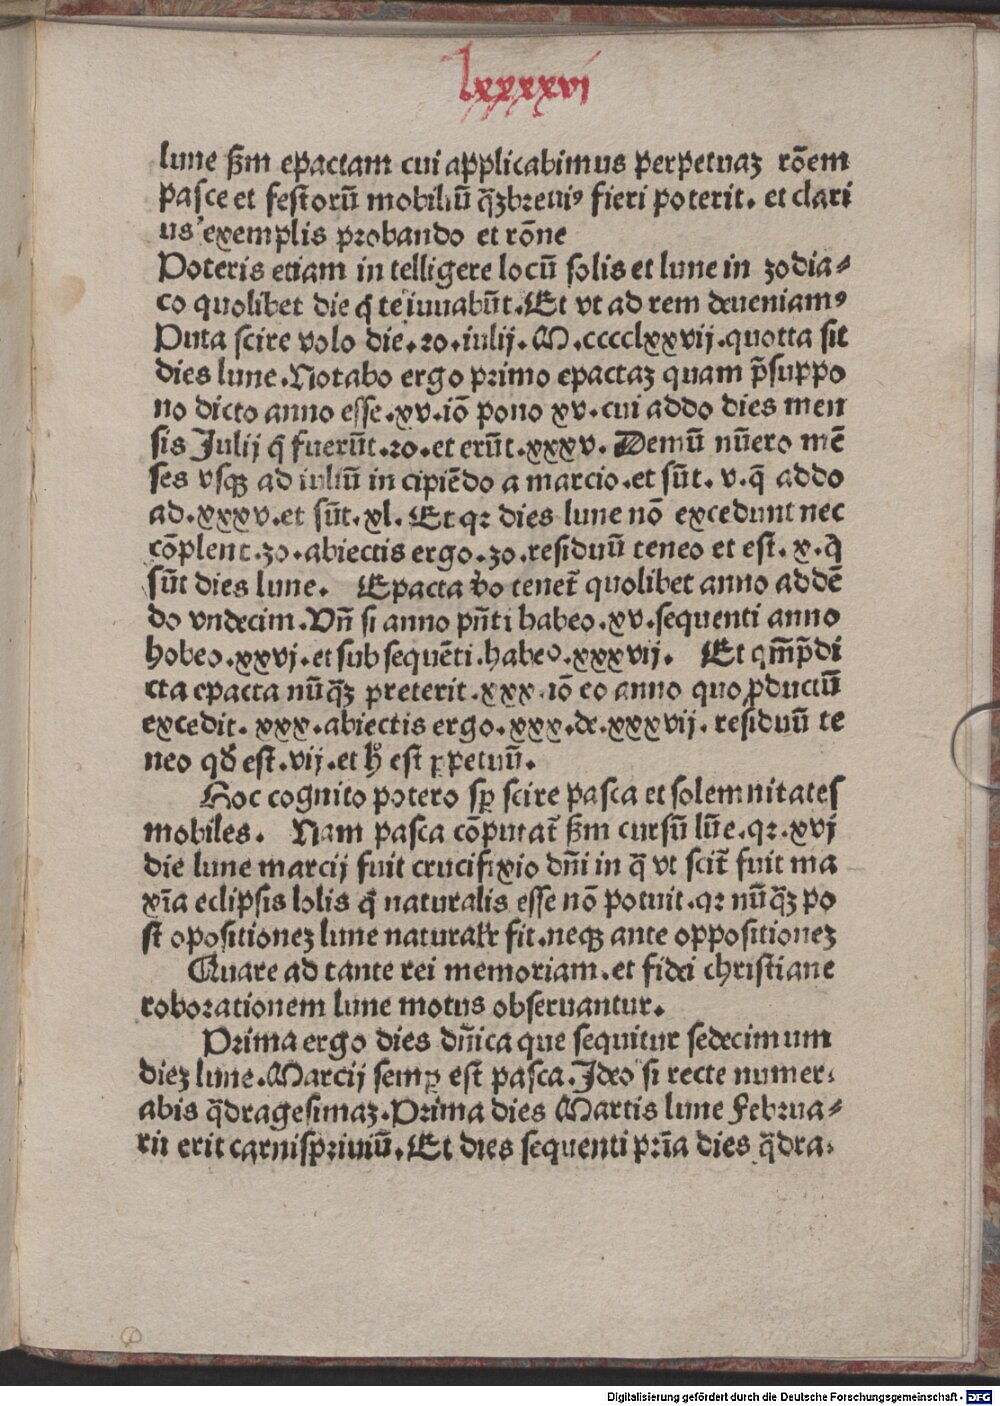 lxxxxvi
lune ẜm epactam cui applicabimus perpetuaꝫ rõem
pasce et festorũ mobiliũ q̃ꝫbreuiꝰ fieri poterit. et clari
us exemplis probando et rõne
Poteris etiam in telligere locũ solis et lune in zodia⸗
co quolibet die q̃ te iuuabũt. Et vt ad rem deueniamꝰ
Puta scire volo die. 20. iulij. M. cccclxxvij. quotta sit
dies lune. Notabo ergo primo epactaꝫ quam p̃suppo
no dicto anno esse. xv. iõ pono xv. cui addo dies men
sis Julij q̃ fuerũt. 20. et erũt. xxxv. Demũ nũero mẽ
ses vsqꝫ ad iuliũ in cipiẽdo a marcio. et sũt. v. q̃ addo
ad. xxxv. et sũt. xl. Et qꝛ dies lune nõ excedunt nec
cõplent. 30. abiectis ergo. 30. residuũ teneo et est. x. q̃
sũt dies lune. Epacta ṽo tenet̃ quolibet anno addẽ
do vndecim. Vñ si anno pñti habeo. xv. sequenti anno
hobeo. xxvj. et sub sequẽti. habeo. xxxvij. Et qm̃ p̃di
cta epacta nũq̃ꝫ preterit. xxx. iõ eo anno quo ꝓductũ
excedit. xxx. abiectis ergo. xxx. de. xxxvij. residuũ te
neo qđ est. vij. et h̃ est ꝑpetuũ.
Hoc cognito potero sꝑ scire pasca et solemnitates
mobiles. Nam pasca cõputat̃ ẜm cursũ lũe. qꝛ. xvj
die lune marcij fuit crucifixio dñi in q̃ vt scit̃ fuit ma
xĩa eclipsis lolis q̃ naturalis esse nõ potuit. qꝛ nũq̃ꝫ po
st opositioneꝫ lune naturalr̃ fit. neqꝫ ante oppositioneꝫ
Quare ad tante rei memoriam. et fidei christiane
roborationem lune motus obseruantur.
Prima ergo dies dñica que sequitur sedecimum
dieꝫ lune. Marcij semꝑ est pasca. Ideo si recte numer⸗
abis q̃dragesimaꝫ. Prima dies Martis lune Februa⸗
rii erit carnispriuiũ. Et dies sequenti prĩa dies q̃dra⸗
Digitalisierung gefördert durch die Deutsche Forschungsgemeinschaft - DFG